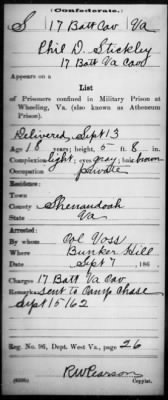 (Confederate.)
S 17 Batt Cav Va
Phil D. Stickley
17 Batt Va Cav
Appears on a
List
of Prisoners confined in Military Prison at
Wheeling, Va. (also known as Atheneum
Prison).
Delivered, Sept 13
Age 18 years; height, 5 ft. 8 in.
Complexion light; eyes gray; hair brown
Occupation Private
Residence:
Town
County Shenandoah
State Va
Arrested:
By whom Col Voss
Where Bunker Hill
Date Sept 7, 186
Charges 17 Batt Va Cav
Remarks Sent to Camp Chase
Sept 15/62
Reg. No. 96, Dept. West Va., page 26
R W Pearson
Copyist.